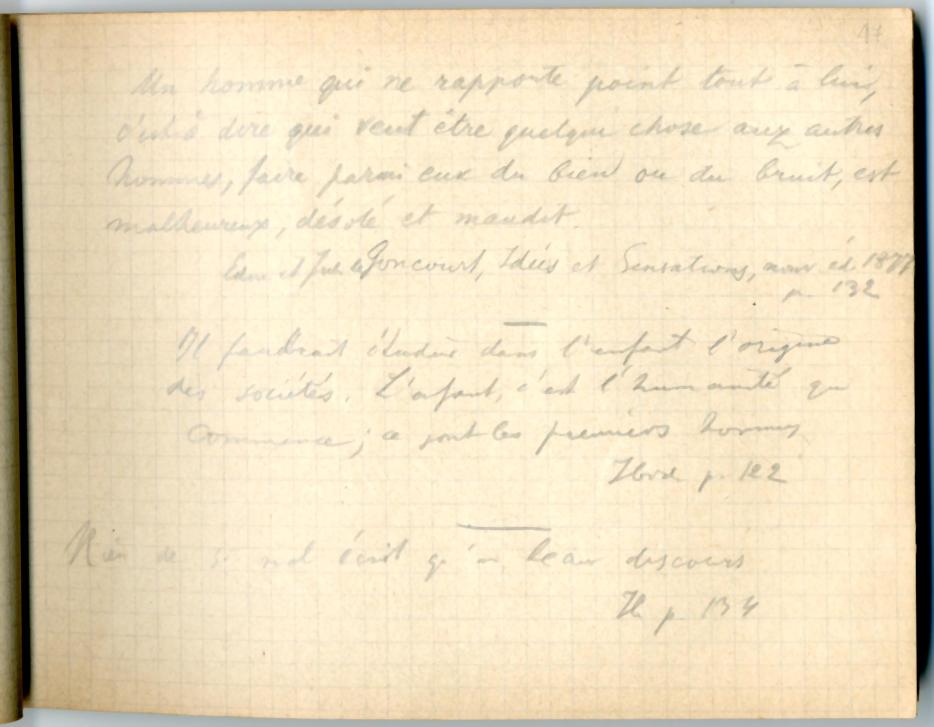 17
Un homme qui ne rapporte point tout à lui,
c'est à dire qui veut être quelque chose aux autres
hommes, faire parmi eux du bien ou du bruit, est
malheureux, désolé et maudit.
Edm et Jul de Goncourt, Idées et Sensations, nouv éd. 1877
p. 132
Il faudrait étudier dans l'enfant l'origine
des sociétés. L'enfant, c'est l'humanité qui
commence ; ce sont les premiers hommes
Ibid p. 122
Rien de si mal écrit qu'un beau discours
Ib p 134